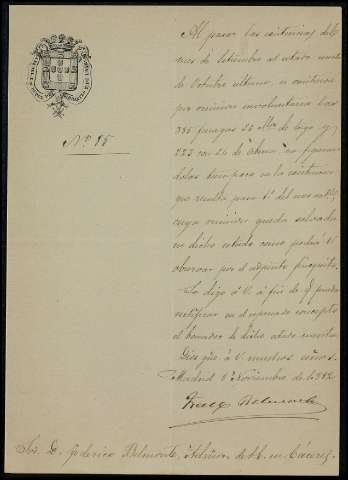 Nº 85
Al pasar las existencias del
mes de Setiembre al estado
de Octubre último, se
por omision involuntaria las
385 fanegas 25 de trigo y
223 con 24 de no figurando
tampoco en la existencia
que resulta para 1º del mes
cuya omision queda salvada
en dicho estado como podrá V.
observar por el adjunto
Lo digo á V. á fin de q. pueda
rectificar en el espresado concepto
el borrador de dicho estado
Dios gue. á V. muchos años.
Madrid 8 Noviembre de 1882
Belmonte
Sr. D. Federico Belmonte, de en Cáceres.